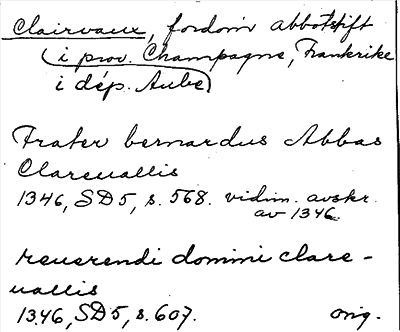 Clairvaux, fordom abbotstift
(i prov. Champagne, Frankrike
i dép. Aube)
Frater bernardus Abbas
Clareuallis
1346, SD5, s. 568. vidim. avskr.
av 1346.
reuerendi domini clare-
uallis
1346, SD5, s. 607. orig.